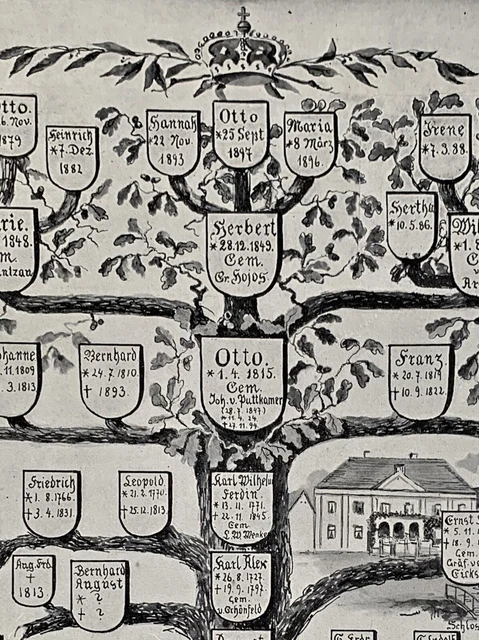 Otto.
6. Nov.
1879
Heinrich
*7. Dez.
1882
Hannah
*22 Nov.
1893
Otto
*25 Sept
1897
Maria
*8 März
1896.
Irene
*7.3.88.
Hertha
*10.5.86.
rie.
1848.
m.
ntzau
Herbert
*28.12.1849.
Gem.
Gr. Hojos.
Wil
*1.8
Ge
Ar
hanne
.11.1809
.3.1813
Bernhard
*24.7.1810.
† 1893.
Otto.
*1.4.1815.
Gem.
Joh. v. Puttkamer
(28.7.1847)
*11.4.24.
†27.11.94.
Franz
*20.7.1819
†10.9.1822.
Friedrich
*1.8.1766.
†3.4.1831.
Leopold.
*21.2.1770.
†25.12.1813.
Karl Wilhelm
Ferdin.
*13.11.1771.
†22.11.1845.
Gem
L.W. Menken
Ernst
*5.11.
†18.9.
Gem.
Gräf. v.
Eicks
Aug. Frd.
†
1813
Bernhard
August
* ?
† ?
Karl Alex
*26.8.1727.
†19.9.1797.
Gem.
v. Schönfeld
Schlos
G. Frdr.